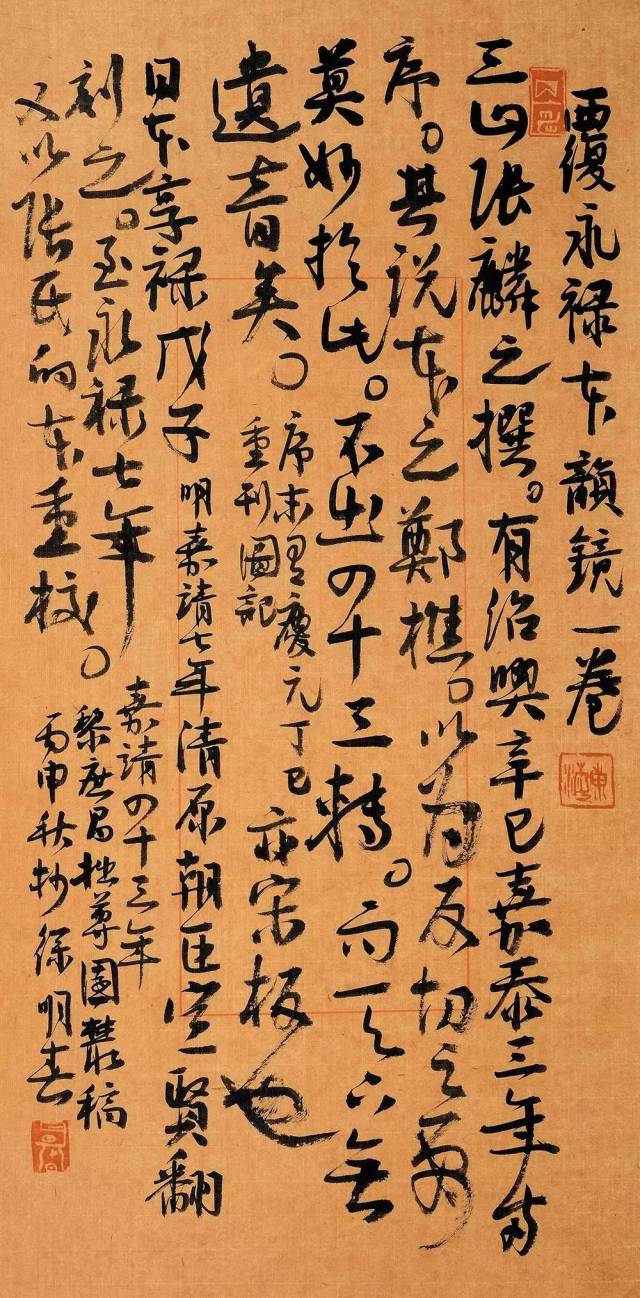 覆永禄本韻鏡一卷
三山張麟之撰。有紹興辛巳嘉泰三年兩
序。其説本之鄭樵。以為反切之學
莫妙於此。不出四十三轉。而天下無
遺音矣。
序末有慶元丁巳
重刊圖記
亦宋板也
日本享禄戊子明嘉靖七年清原朝臣宣賢翻
刻之。至永禄七年。嘉靖四十三年
又以張氏的本重校。
黎庶昌拙尊園叢稿
丙申秋抄徐明春